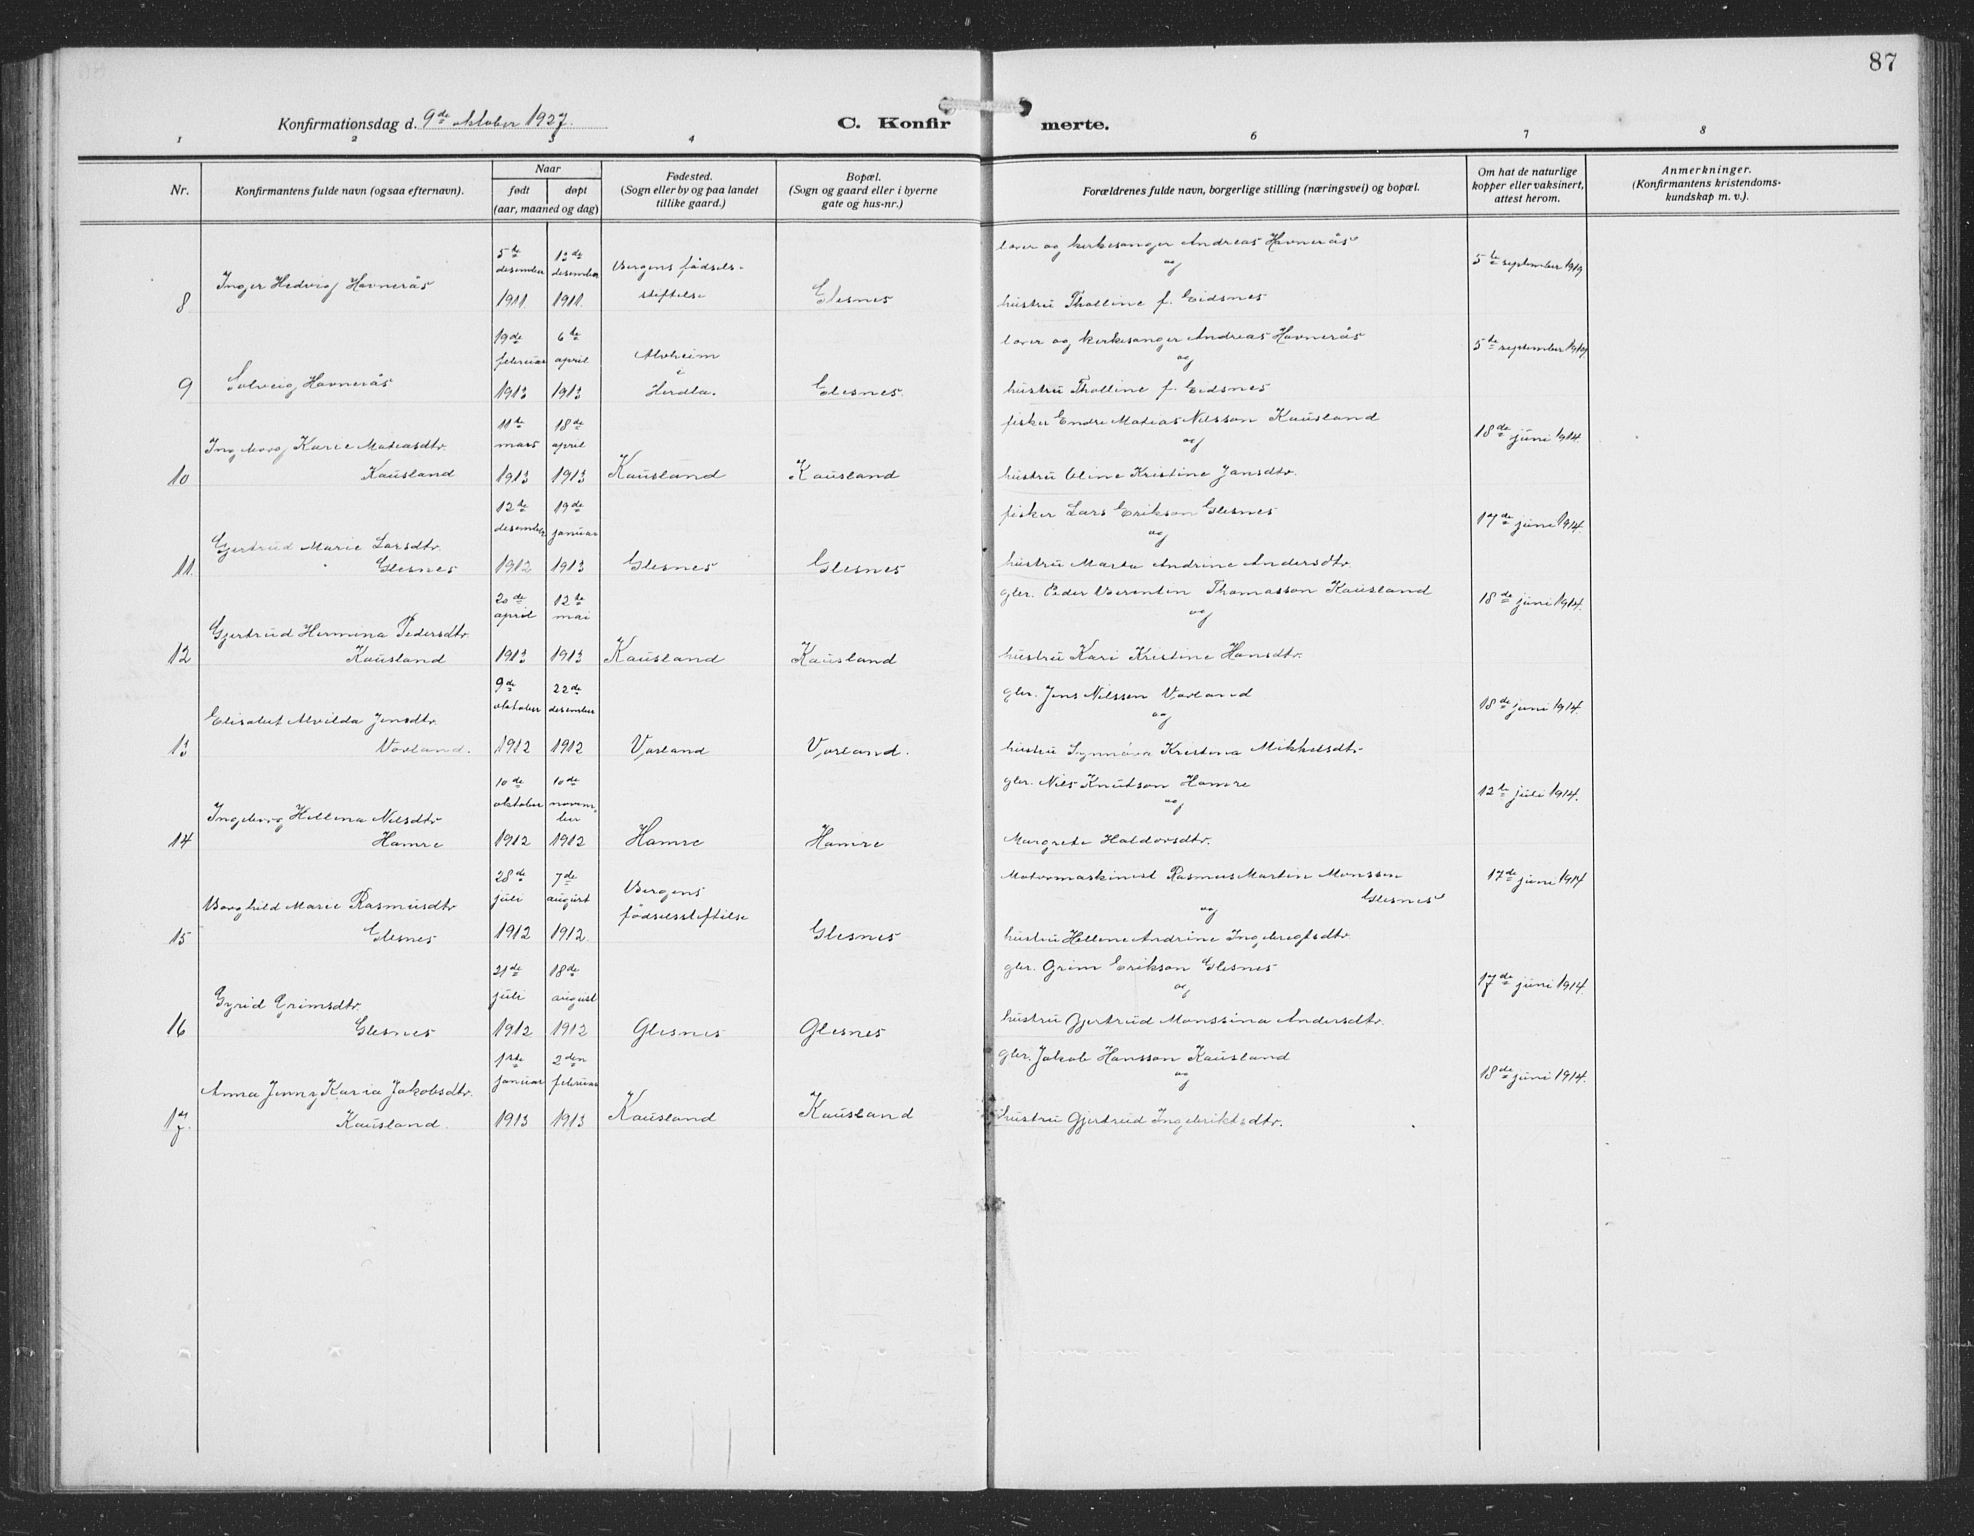 87
Konfirmationsdag d. 9de oktober 1927.
C. Konfirmerte.
1 2 3 4 6 7 8
Nr.
Konfirmantens fulde navn (ogsaa efternavn).
Naar
født døpt
(aar, maaned og dag)
Fødested.
(Sogn eller by og paa landet
tillike gaard.)
Bopæl.
(Sogn og gaard eller i byerne
gate og hus-nr.)
Forældrenes fulde navn, borgerlige stilling (næringsvei) og bopæl.
Om hat de naturlige
kopper eller vaksinert,
attest herom.
Anmerkninger.
(Konfirmantens kristendoms-
kundskap m. v.).
8 Inger Hedvig Havnerås
5te desember 1911 13de desember 1911.
Bergens fødsels-
stiftelse
Glesnes
lærer og kirkesanger Andreas Havnerås
og
hustru Tholline f. Eidsnes
5te september 1919
9 Solveig Havnerås
19de februar 1913 6te april 1913
Alvheim
i
Herdla.
Glesnes.
lærer og kirkesanger Andreas Havnerås
og
hustru Tholline f. Eidsnes
5te september 1919
10 Ingeborg Karie Matiasdtr.
Kausland
11te mars 1913 18de april 1913
Kausland
Kausland
fisker Endre Matias Nilsson Kausland
og
hustru Oline Kristine Jansdtr.
18de juni 1914.
11. Gjertrud Marie Larsdtr.
Glesnes
12te desember 1912 19de januar 1913
Glesnes
Glesnes
fisker Lars Erikson Glesnes
og
hustru Marta Andrine Andersdtr.
17de juni 1914.
12 Gjertrud Hermina Pedersdtr.
Kausland
20de april 1913 12te mai 1913
Kausland
Kausland
gbr. Peder Thomasson Kausland
og
hustru Kari Kristine Hansdtr.
18de juni 1914.
13 Elisabet Alvilda Jensdtr.
Vorland.
9de oktober 1912 22de desember 1912
Vorland
Vorland.
gbr. Jens Nilssen Vorland
og
hustru Synnøva Kristena Mikkelsdtr.
18de juni 1914.
14 Ingeborg Hellena Nilsdtr
Hamre
10de oktober 1912 10de november 1912
Hamre
Hamre
gbr. Nils Knutson Hamre
og
Margrete Haldorsdtr.
12te juli 1914.
15 Borghild Marie Rasmusdtr
Glesnes
28de juli 1912 7de august 1912.
Bergens
fødselsstiftelse
Glesnes
Motormaskinist Rasmus Martin Monssen
Glesnes
og
hustru Hellene Andrine Ingebregtsdtr.
17de juni 1914
16 Gyrid Grimsdtr.
Glesnes
21de juli 1912 18de august 1912
Glesnes
Glesnes
gbr. Grim Erikson Glesnes
og
hustru Gjertrud Monssina Andersdtr.
17de juni 1914.
17. Anna Jenny Karia Jakobsdtr.
Kausland.
1ste januar 1913 2den februar 1913
Kausland
Kausland
gbr. Jakob Hansson Kausland
og
hustru Gjertrud Ingebriktsdtr.
18de juni 1914.